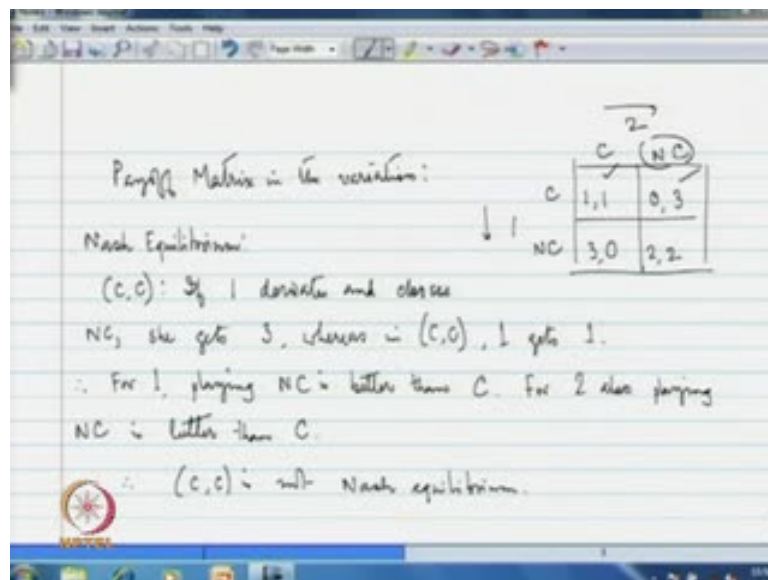 Edit View Insert Actions Tools Help
Page Width
2
C NC
Payoff Matrix in the variation:
C 1,1 0,3
1
NC 3,0 2,2
Nash Equilibrium:
(C,C): If 1 deviates and
NC, she gets 3, whereas in (C,C), 1 gets 1.
∴ For 1, playing NC is better than C. For 2 also playing
NC is better than C.
∴ (C,C) is not Nash equilibrium.
NPTEL